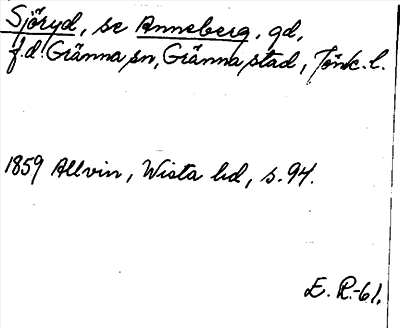 Sjöryd, se Anneberg, gd,
f.d. Gränna sn, Gränna stad, Jönk. l.
1859 Allvin, Wista hd, s. 94.
E. R.-61.